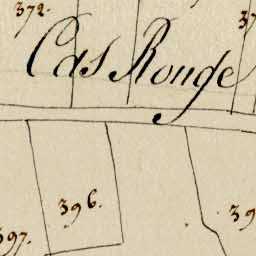 372.
37
Cas Rouge
396.
39
397.